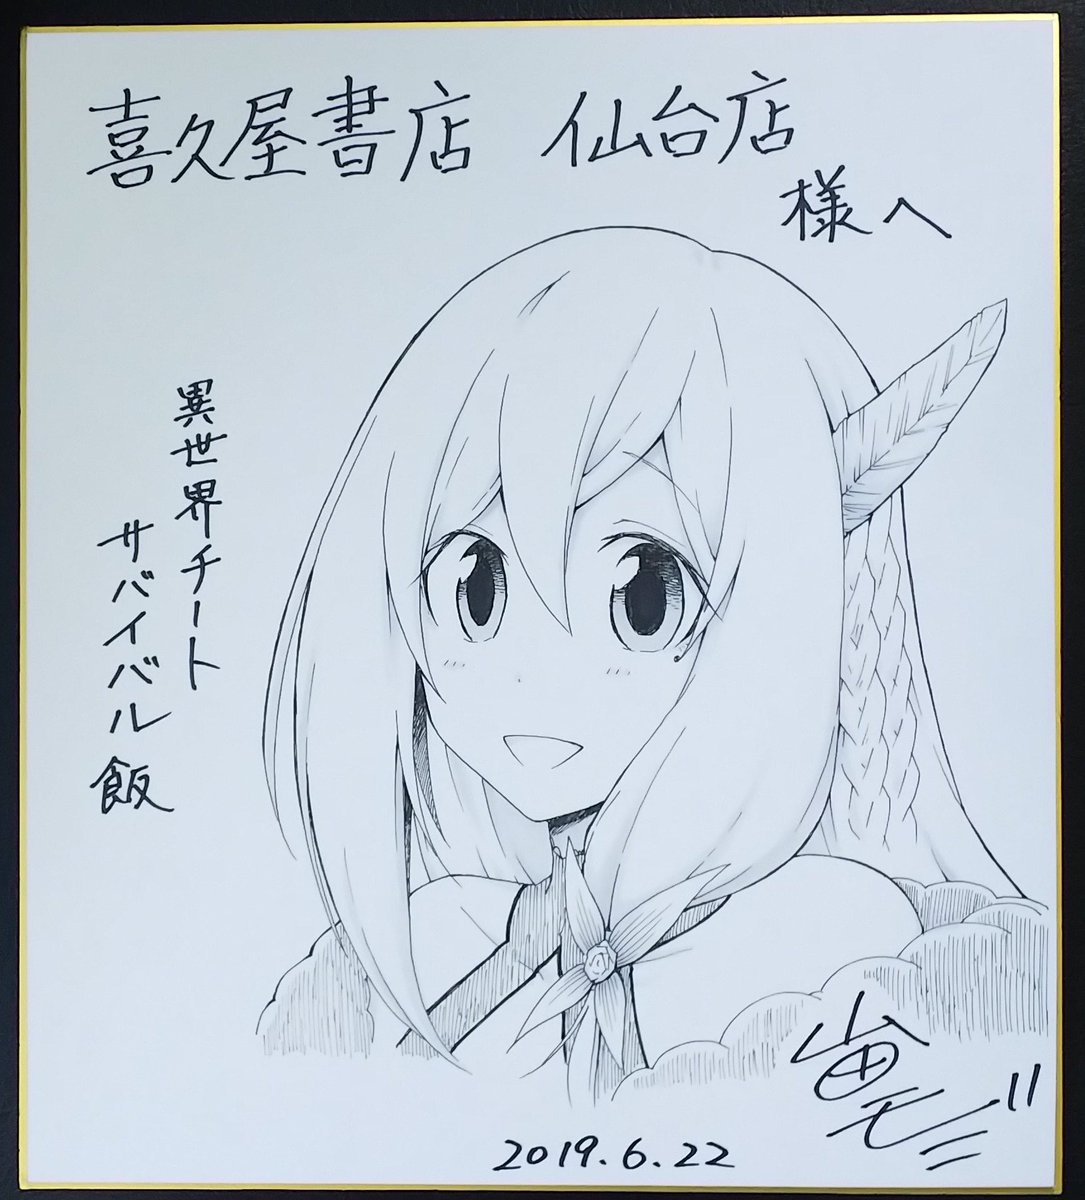 喜久屋書店 仙台店
様へ
異世界チート
サバイバル飯
2019.6.22